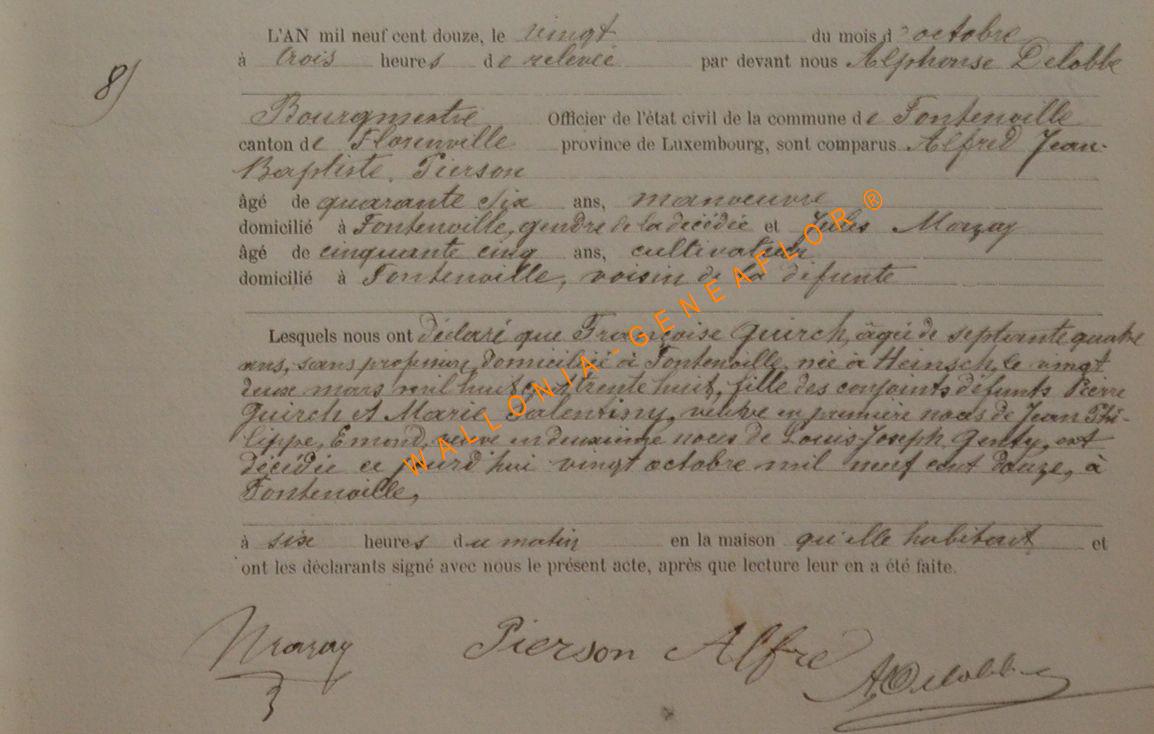 L'AN mil neuf cent douze, le vingt du mois d'octobre
à trois heures de relevée par devant nous Alphonse Delobbe
8)
Bourgmestre Officier de l'état civil de la commune de Fontenoille
canton de Florenville province de Luxembourg, sont comparus Alfred Jean-
Baptiste Pierson
âgé de quarante six ans, manoeuvre
domicilié à Fontenoille, gendre de la décédée et Jules Marzay
âgé de cinquante cinq ans, cultivateur
domicilié à Fontenoille, voisin de la défunte
Lesquels nous ont déclaré que Françoise Guirch, âgée de septante quatre
ans, sans profession, domiciliée à Fontenoille, née à Heinsch, le vingt
deux mars mil huit cent trente huit, fille des conjoints défunts Pierre
Guirch et Marie Valentiny, veuve en première noces de Jean Phi-
lippe, Emond, veuve en deuxième noces de Louis Joseph Genty, est
décédée ce jourd'hui vingt octobre mil neuf cent douze, à
Fontenoille,
à six heures du matin en la maison qu'elle habitait et
ont les déclarants signé avec nous le présent acte, après que lecture leur en a été faite.
Pierson Alfre
ADelobbe
WALLONIA-GENEAFLOR ®